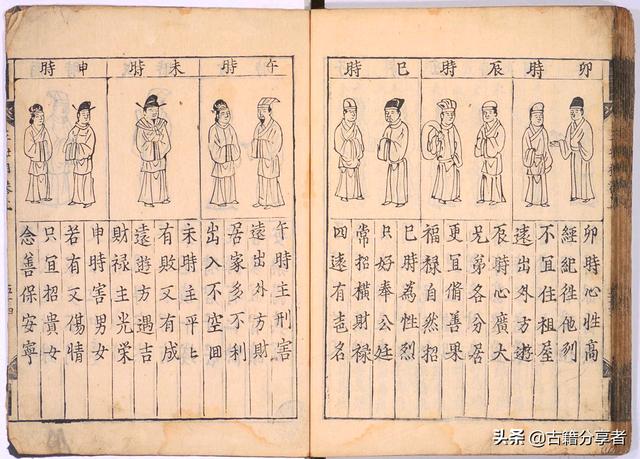 卯時
辰時
巳時
卯時心性高
經紀徃他列
不宜住祖屋
遠出外方遊
辰時心廣大
兄弟各分居
更宜脩善果
福禄自然招
巳時為性烈
只好奉公廷
常招橫財禄
四遠有名
午時
未時
申時
午時主刑害
遠出外方財
居家多不利
出入不空回
未時主平匕
有敗又有成
遠遊方遇吉
財禄主光栄
申時害男女
若有又傷情
只宜招貴女
念善保安寧
头条 @古籍分享者